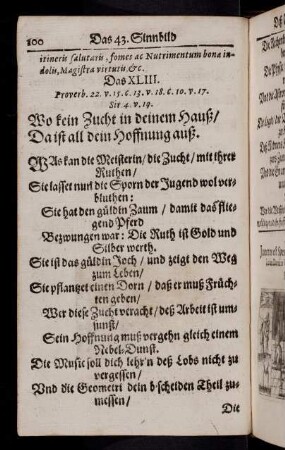 100 Das 43. Sinnbild
itineris salutaris, fomes ac Nutrimentum bonæ in-
dolis, Magistra virtutis, &c.
Das XLIII.
Proverb. 22. v. 15. C. 13. v. 18. C. 10. v. 17.
Sir 4. v. 19.
Wo kein Zucht in deinem Hauß/
Da ist all dein Hoffnung auß.
WAs kan die Meisterin/ die Zucht/ mit ihrer
Ruthen/
Sie lasset nun die Sporn der Jugend wol ver-
bluthen:
Sie hat den güldin Zaum/ damit das flie-
gend Pferd
Bezwungen war: Die Ruth ist Gold und
Silber werth.
Sie ist das güldin Joch/ und zeigt den Weg
zum Leben/
Sie pflantzet einen Dorn/ daß er muß Früch-
ten geben/
Wer diese Zucht veracht/ deß Arbeit ist um-
sunst/
Sein Hoffnung muß vergehn gleich einem
Nebel-Dunst.
Die Music soll dich lehr'n deß Lobs nicht zu
vergessen/
Vnd die Geometri dein b'scheiden Theil zu-
messen/
Die